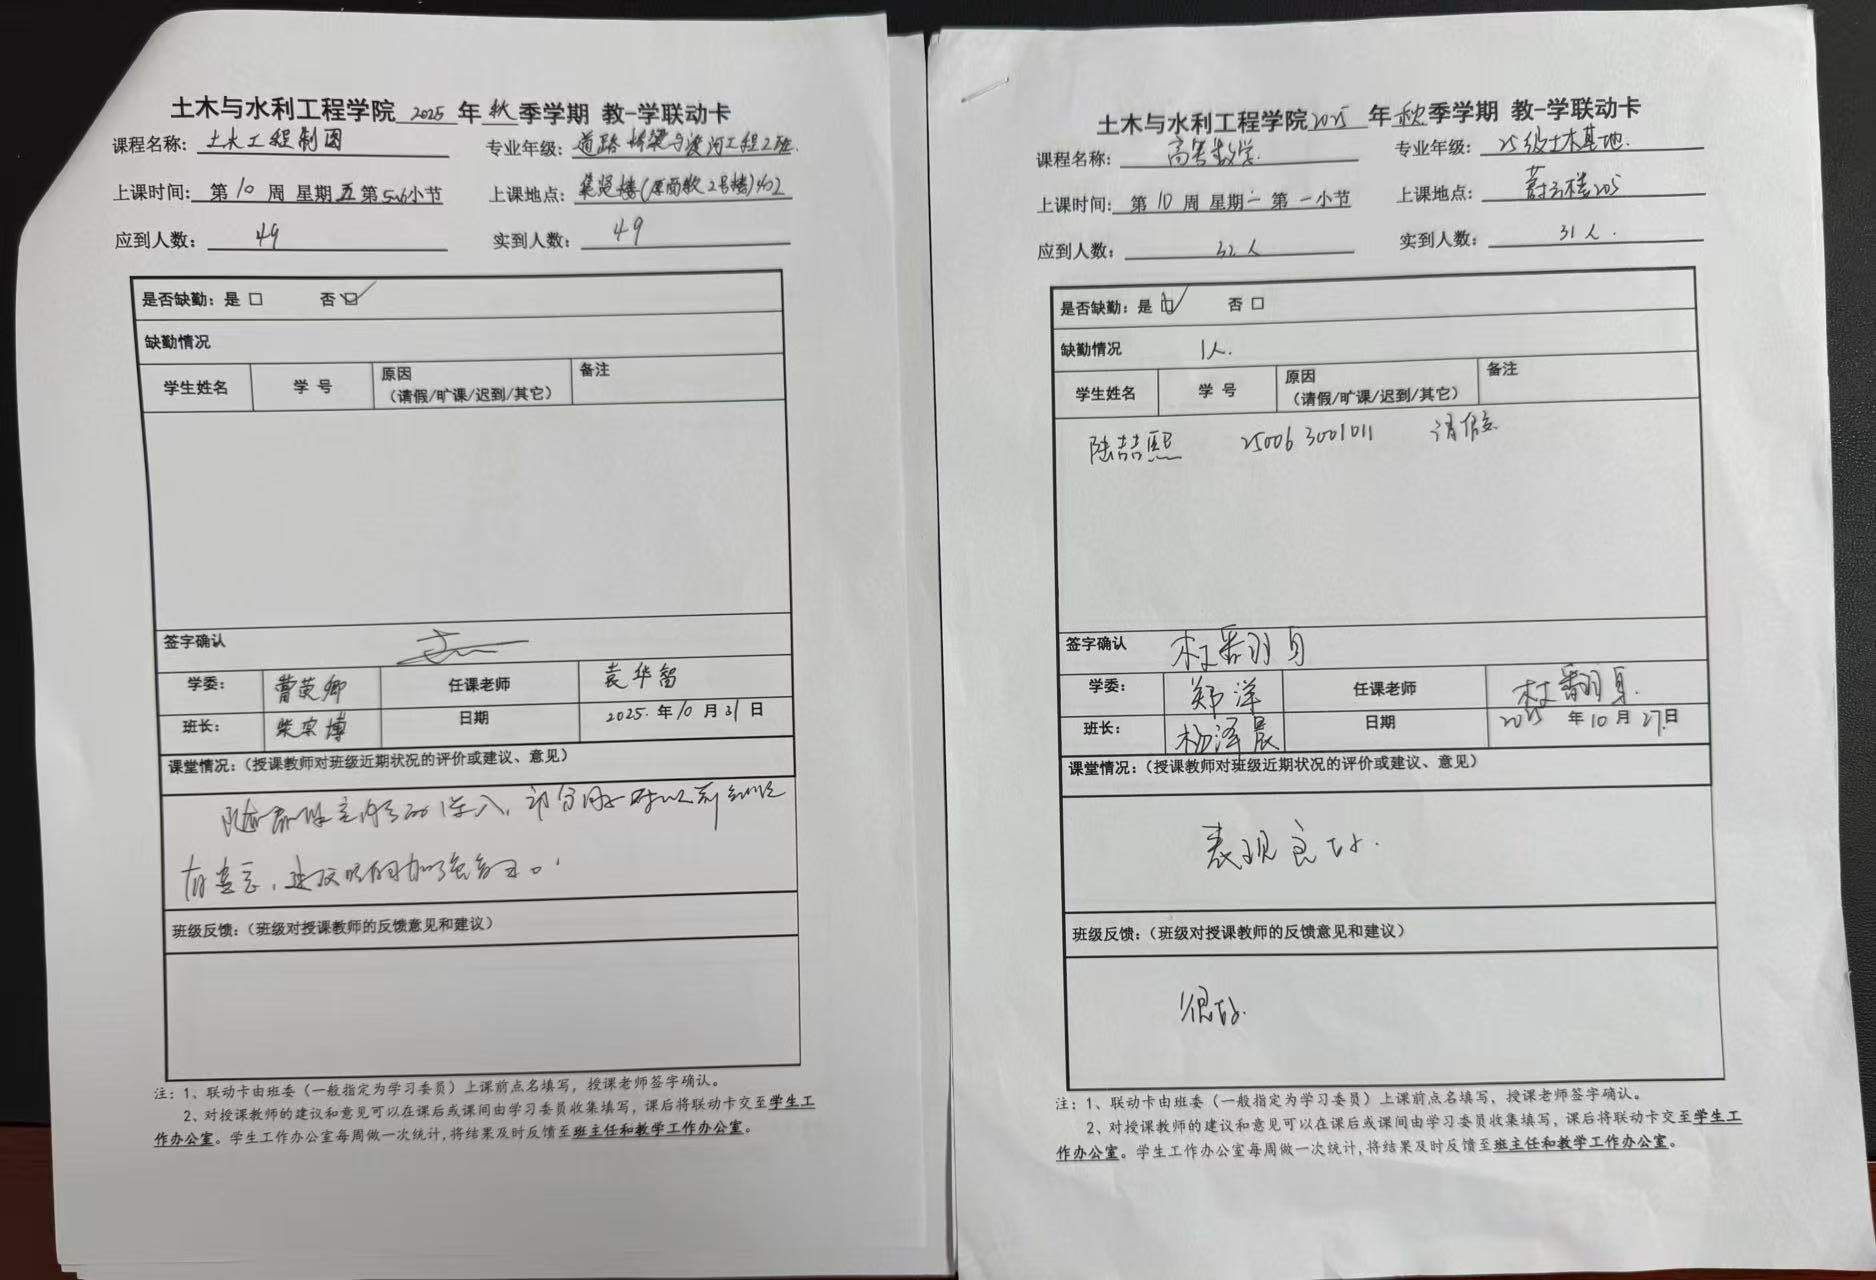 土木与水利工程学院 2025 年 秋 季学期 教-学联动卡
课程名称: 土木工程制图 专业年级: 道路桥梁与渡河工程2班.
上课时间: 第 10 周 星期 五 第 5、6 小节 上课地点: 集贤楼(原商教2号楼)402
应到人数: 49 实到人数: 49
是否缺勤: 是 □ 否 ☑
缺勤情况
学生姓名 学 号 原因 备注
(请假/旷课/迟到/其它)
签字确认
学委: 曹荧卿 任课老师 袁华智
班长: 柴宗博 日期 2025. 年 10 月 31 日
课堂情况: (授课教师对班级近期状况的评价或建议、意见)
随着课程的深入, 部分同学对以前知识
有遗忘, 建议课后加强复习。
班级反馈: (班级对授课教师的反馈意见和建议)
注: 1、联动卡由班委 (一般指定为学习委员) 上课前点名填写, 授课老师签字确认。
2、对授课教师的建议和意见可以在课后或课间由学习委员收集填写, 课后将联动卡交至学生工
作办公室。学生工作办公室每周做一次统计, 将结果及时反馈至班主任和教学工作办公室。
土木与水利工程学院 2025 年 秋 季学期 教-学联动卡
课程名称: 高等数学. 专业年级: 25级土木基地.
上课时间: 第 10 周 星期 一 第 一 小节 上课地点: 楼205
应到人数: 32人 实到人数: 31人.
是否缺勤: 是 ☑ 否 □
缺勤情况 1人.
学生姓名 学 号 原因 备注
(请假/旷课/迟到/其它)
陆喆熙 25006 3001011 请假
签字确认
学委: 郑洋 任课老师
班长: 杨泽晨 日期 2025 年 10 月 27 日
课堂情况: (授课教师对班级近期状况的评价或建议、意见)
表现良好.
班级反馈: (班级对授课教师的反馈意见和建议)
很好.
注: 1、联动卡由班委 (一般指定为学习委员) 上课前点名填写, 授课老师签字确认。
2、对授课教师的建议和意见可以在课后或课间由学习委员收集填写, 课后将联动卡交至学生工
作办公室。学生工作办公室每周做一次统计, 将结果及时反馈至班主任和教学工作办公室。